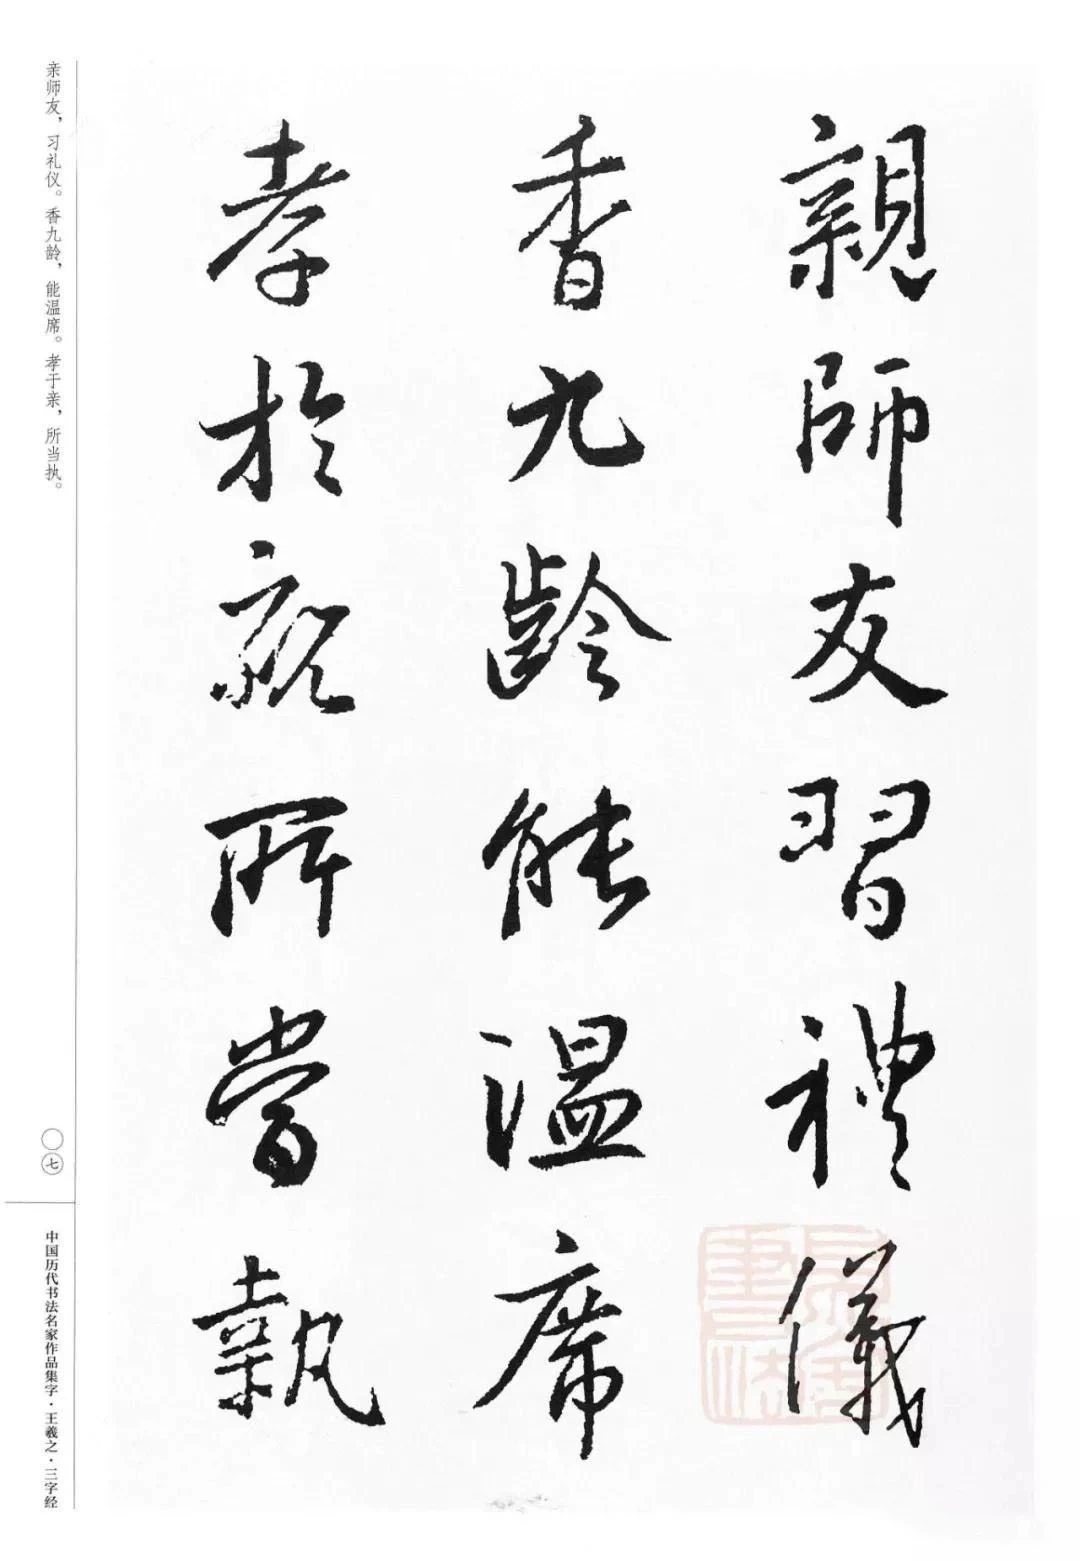 親師友習禮儀
香九齡能温席
孝於親所當執
亲师友，习礼仪。香九龄，能温席。孝于亲，所当执。
〇七
中国历代书法名家作品集字·王羲之·三字经